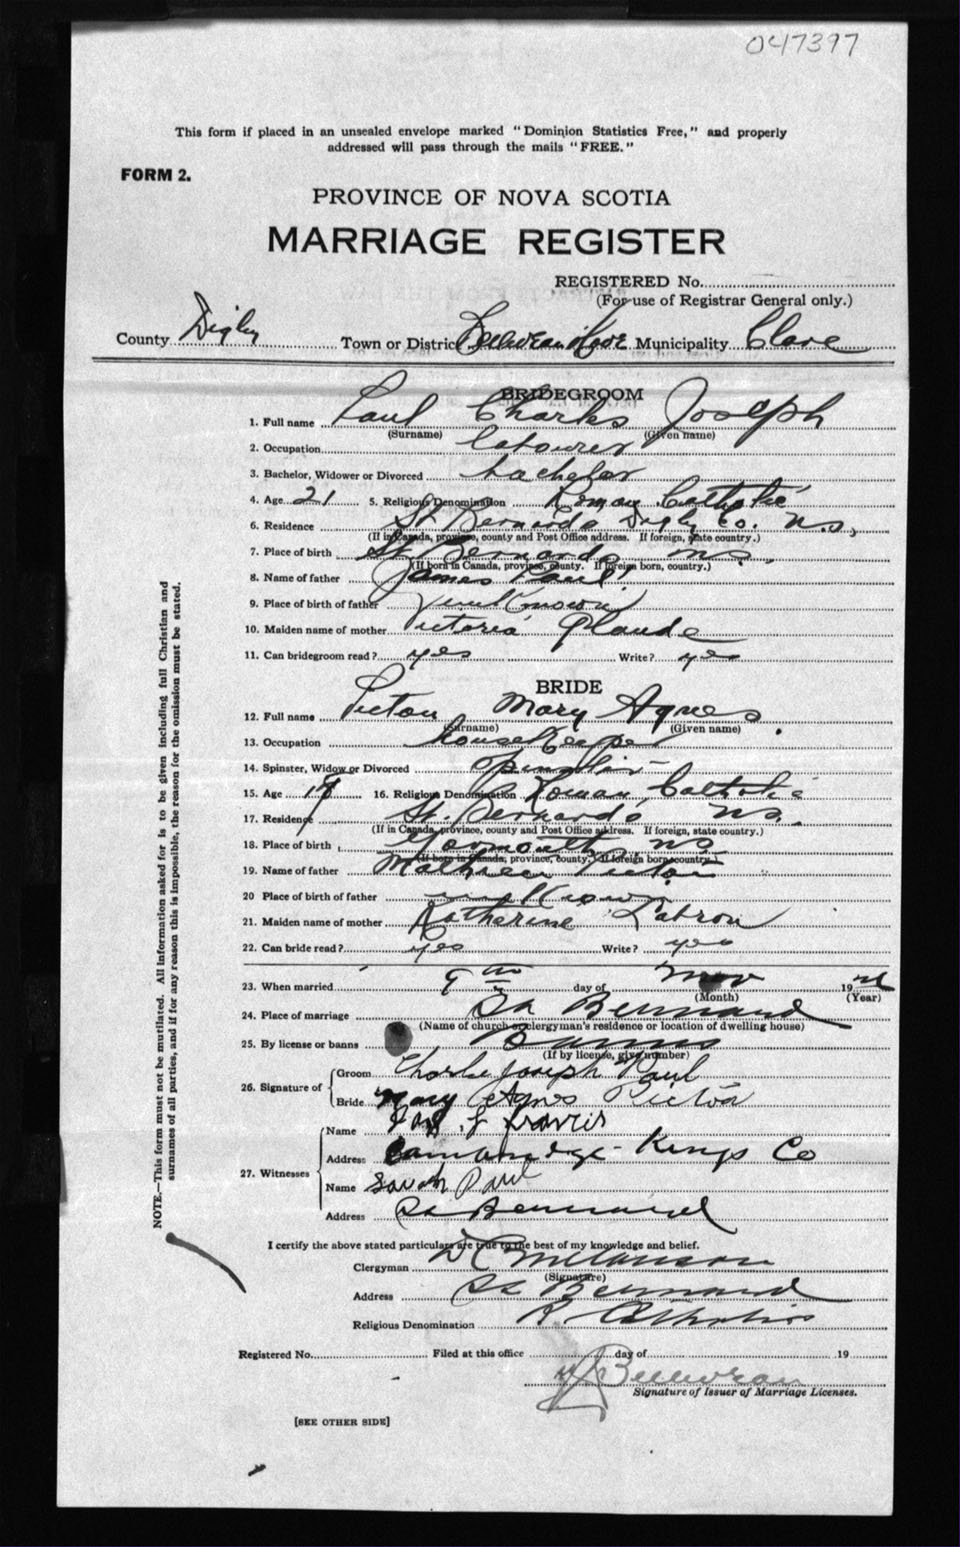 047397
This form if placed in an unsealed envelope marked "Dominion Statistics Free," and properly
addressed will pass through the mails "FREE."
FORM 2.
PROVINCE OF NOVA SCOTIA
MARRIAGE REGISTER
REGISTERED No.
(For use of Registrar General only.)
County Digby Town or District Cove Municipality Clare
BRIDEGROOM
1. Full name Paul Charles Joseph
(Surname) (Given name)
2. Occupation labourer
3. Bachelor, Widower or Divorced bachelor
4. Age 21 5. Religious Denomination Roman Catholic
6. Residence St. Bernards Digby Co. N.S.,
(If in Canada, province, county and Post Office address. If foreign, state country.)
7. Place of birth St. Bernards N.S.
(If born in Canada, province, county. If foreign born, country.)
8. Name of father James Paul
9. Place of birth of father unknown
10. Maiden name of mother Victoria Glaude
11. Can bridegroom read? yes Write? yes
BRIDE
12. Full name Picton Mary Agnes
(Surname) (Given name)
13. Occupation housekeeper
14. Spinster, Widow or Divorced Spinster
15. Age 19 16. Religious Denomination Roman Catholic
17. Residence St. Bernards N.S.
(If in Canada, province, county and Post Office address. If foreign, state country.)
18. Place of birth Yarmouth N.S
(If born in Canada, province, county. If foreign born, country.)
19. Name of father Picton
20 Place of birth of father unknown
21. Maiden name of mother Katherine Labron
22. Can bride read? Yes Write? yes
23. When married 9th day of Nov 19
(Month) (Year)
24. Place of marriage St Bernard
(Name of church or clergyman's residence or location of dwelling house)
25. By license or banns Banns
(If by license, give number)
26. Signature of Groom Charlie Joseph Paul
Bride Mary Agnes Picton
27. Witnesses Name Francis
Address Cambridge Kings Co
Name Sarah Paul
Address St Bernard
I certify the above stated particulars are true to the best of my knowledge and belief.
Clergyman D C Melanson
(Signature)
Address St Bernard
Religious Denomination R Catholic
Registered No. Filed at this office day of 19
Belliveau
Signature of Issuer of Marriage Licenses.
[SEE OTHER SIDE]
NOTE.—This form must not be mutilated. All information asked for is to be given including full Christian and
surnames of all parties, and if for any reason this is impossible, the reason for the omission must be stated.